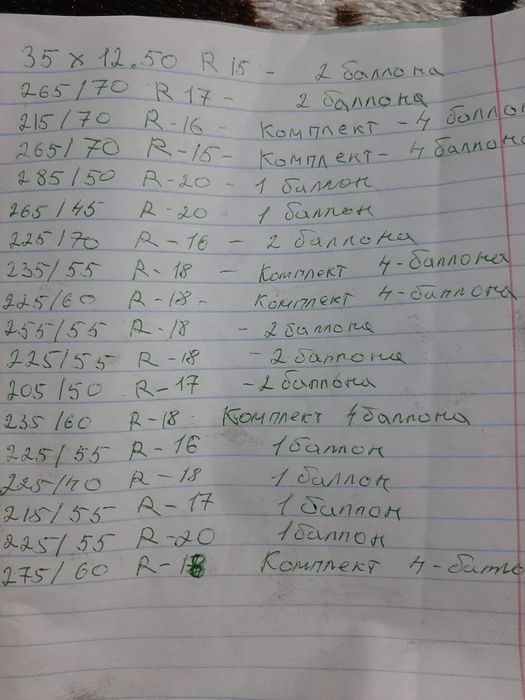 35 x 12.50 R 15 - 2 баллона
265/70 R 17 - 2 баллона
215/70 R-16 - Комплект - 4 балло
265/70 R-15 - Комплект - 4 баллона
285/50 R-20 - 1 баллон
265/45 R-20 - 1 баллон
225/70 R-16 - 2 баллона
235/55 R-18 - Комплект 4-баллона
225/60 R-18 - Комплект 4-баллона
255/55 R-18 - 2 баллона
225/55 R-18 - 2 баллона
205/50 R-17 - 2 баллона
235/60 R-18 Комплект 4 баллона
225/55 R-16 1 баллон
225/40 R-18 1 баллон
215/55 R-17 1 баллон
225/55 R-20 1 баллон
275/60 R-18 Комплект 4-